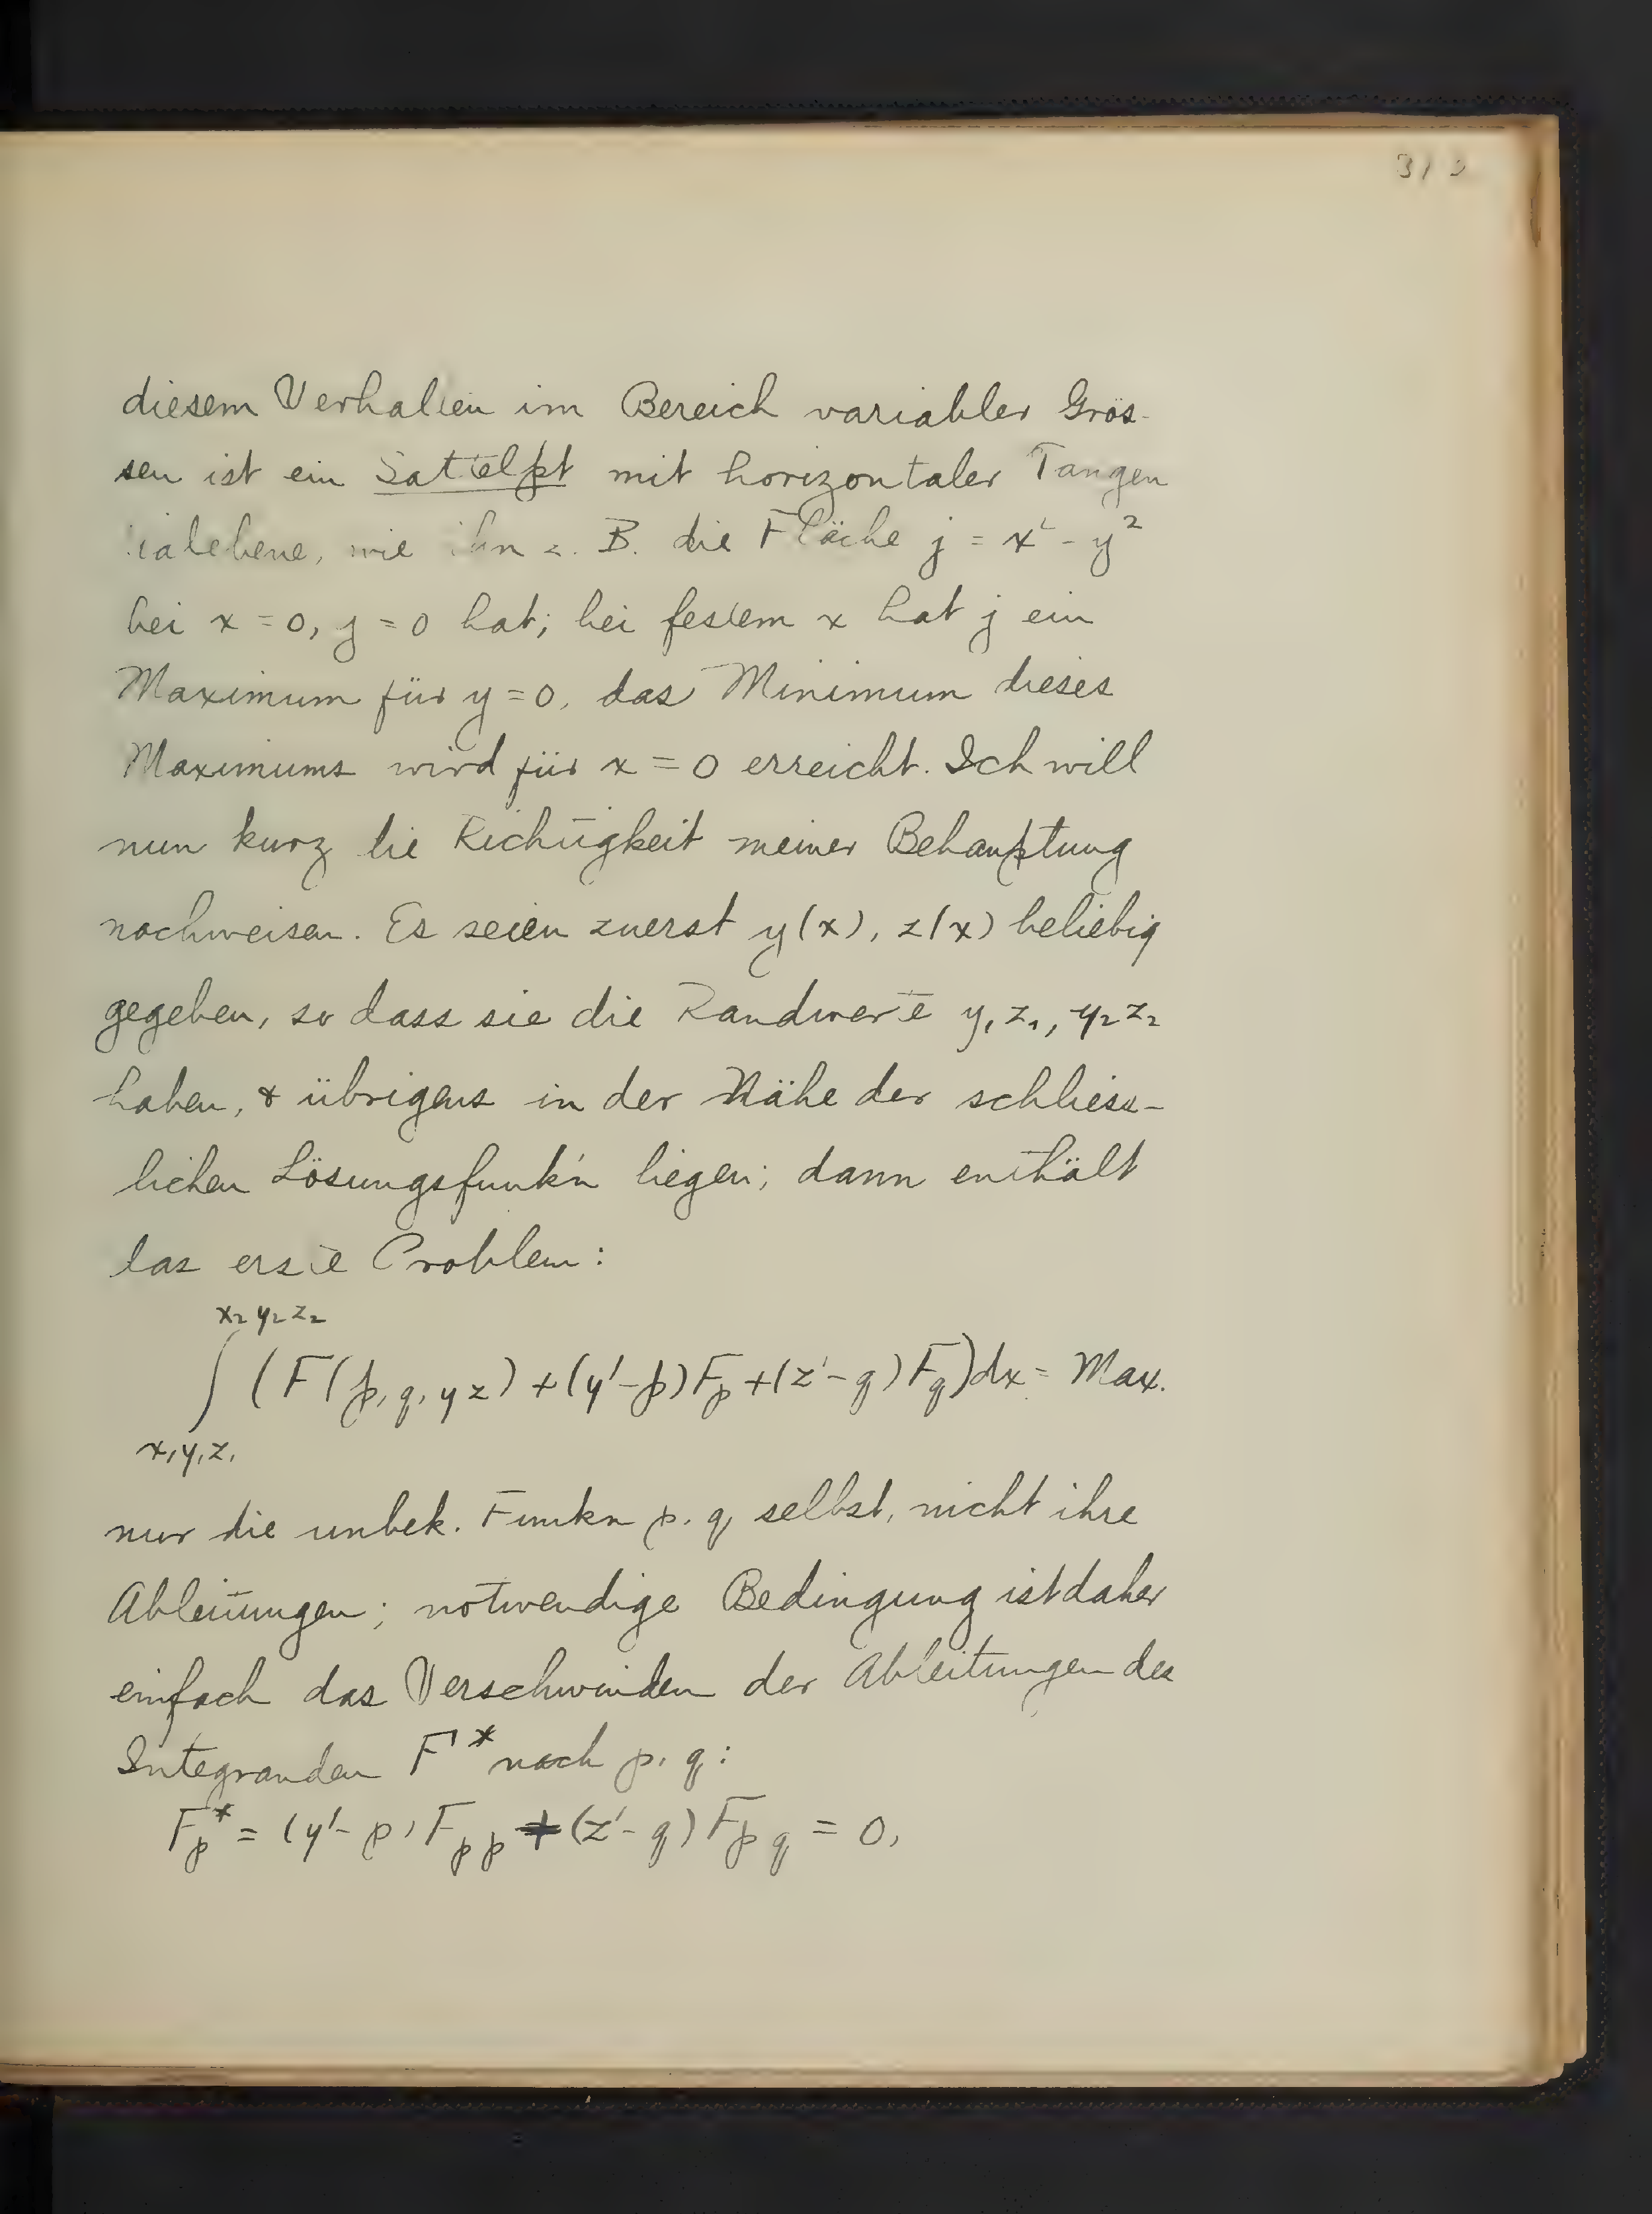 diesem Verhalten im Bereich variabler Grös-
sen ist ein Sattelpt mit horizontaler Tangen
tialebene, wie ihn z. B. die Fläche j = x² - y²
bei x = 0, y = 0 hat; bei festem x hat j ein
Maximum für y = 0, das Minimum dieses
Maximums wird für x = 0 erreicht. Ich will
nun kurz die Richtigkeit meiner Behauptung
nachweisen. Es seien zuerst y(x), z(x) beliebig
gegeben, so dass sie die Randwerte y₁ z₁, y₂ z₂
haben, & übrigens in der Nähe der schliess-
lichen Lösungsfunk'n liegen; dann enthält
das erste Problem:
x₂ y₂ z₂
∫ (F(p, q, y z) + (y' - p) F_p + (z' - q) F_q) dx = Max.
x₁ y₁ z₁
nur die unbek. Funkn p. q selbst, nicht ihre
Ableitungen; notwendige Bedingung ist daher
einfach das Verschwinden der Ableitungen des
Integranden F* nach p. q:
F_p* = (y' - p) F_pp + (z' - q) F_pq = 0,